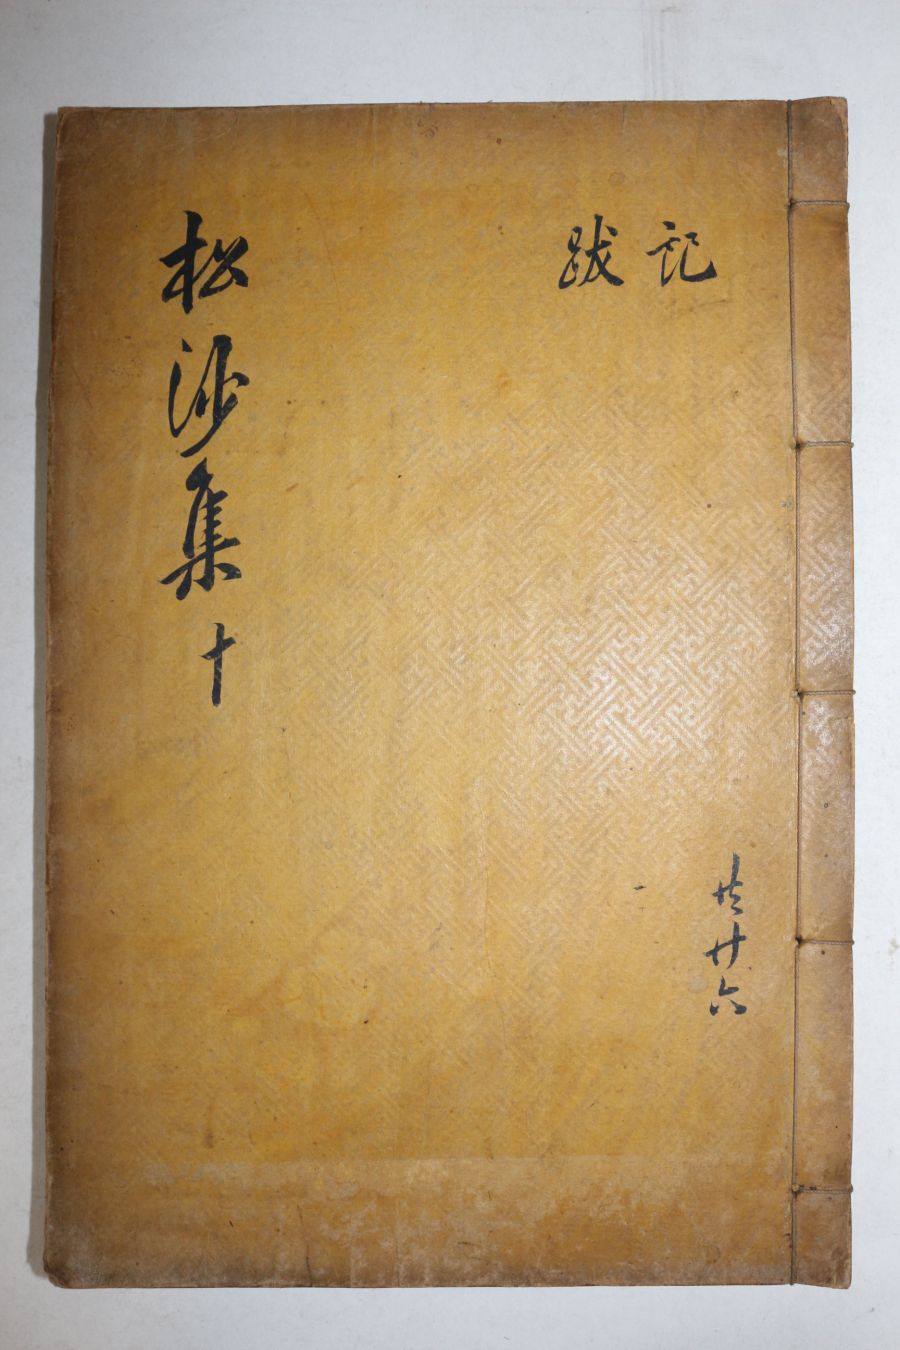 記
跋
共廿六
松沙集 十